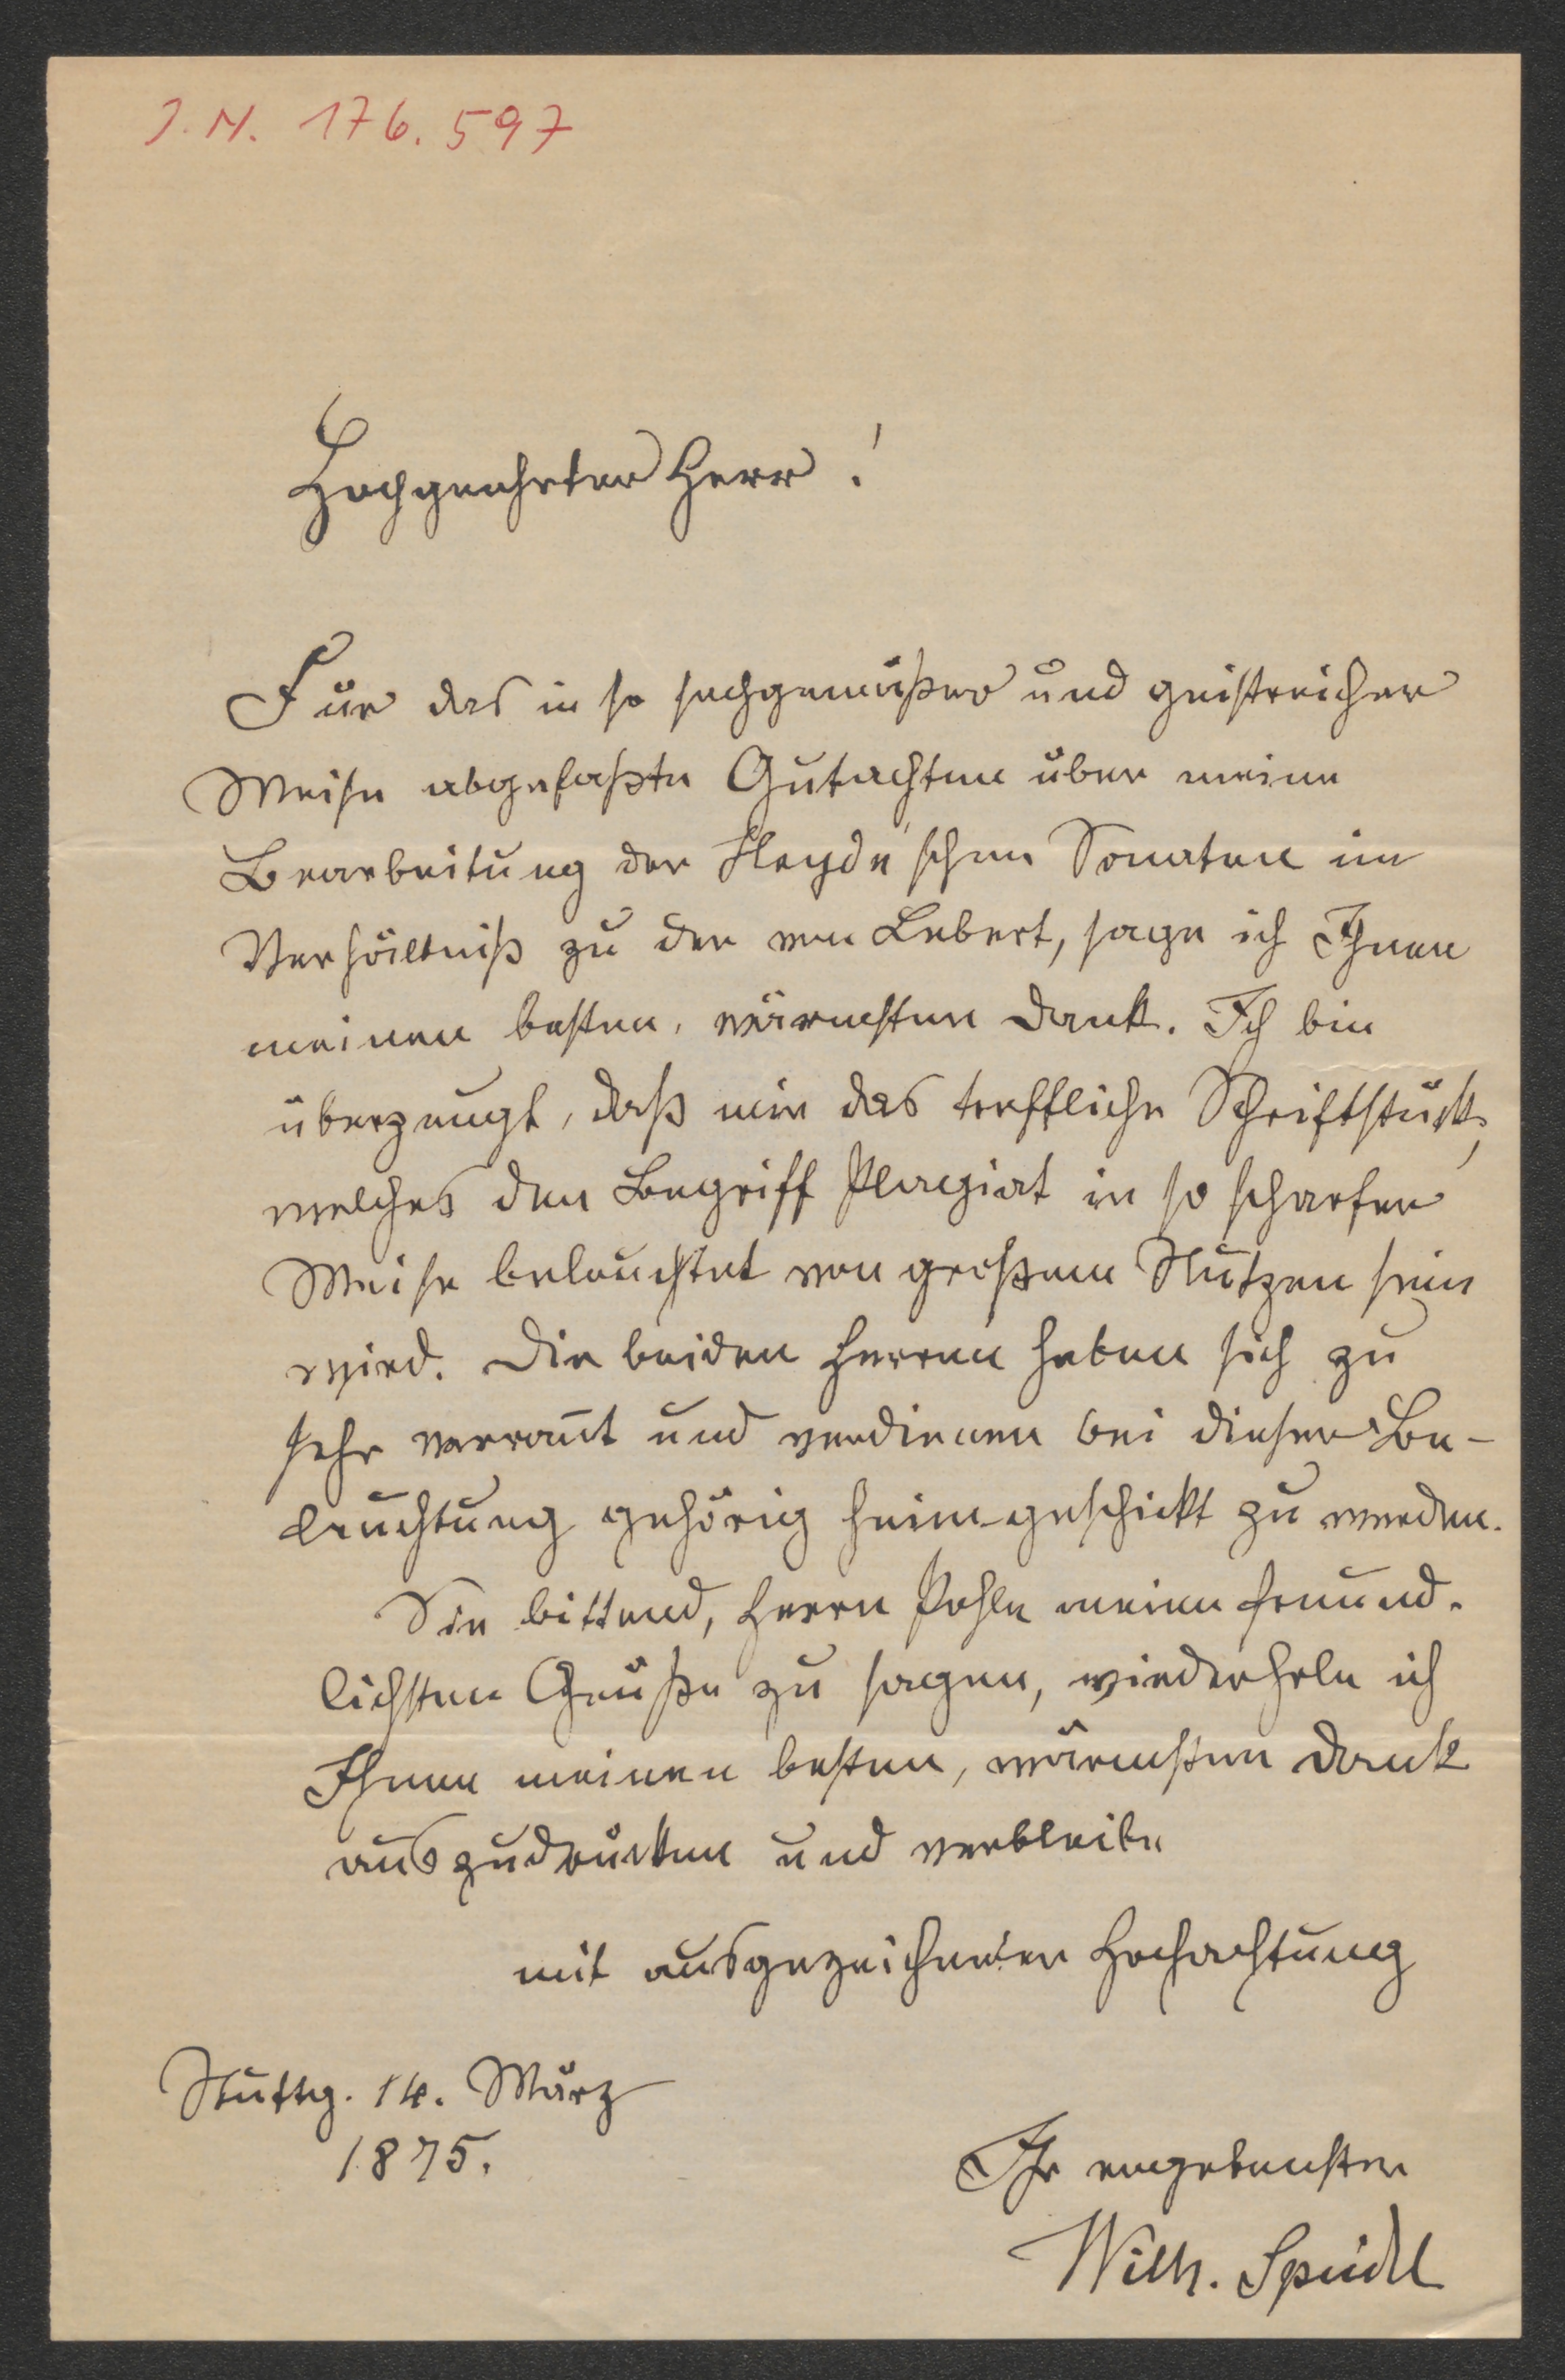 J.N. 176.597
Hochgeehrter Herr!
Für das in so sachgemäßer und geistreicher
Weise abgefaßte Gutachten über meine
Bearbeitung der Haydn'schen Sonaten im
Verhältniß zu der von Lebert, sage ich Ihnen
meinen besten, wärmsten Dank. Ich bin
überzeugt, daß mir das treffliche Schriftstück,
welches den Begriff Plagiat in so scharfer
Weise beleuchtet von großem Nutzen sein
wird. Die beiden Herren haben sich zu
sehr verrannt und verdienen bei dieser Be-
leuchtung gehörig heimgeschickt zu werden.
Sie bittend, Herrn Pohle meine freund-
lichsten Grüße zu sagen, wiederhole ich
Ihnen meinen besten, wärmsten Dank
auszudrücken und verbleibe
mit ausgezeichneter Hochachtung
Stuttg. 14. März
1875.
Ihr ergebenster
Wilh. Speidel